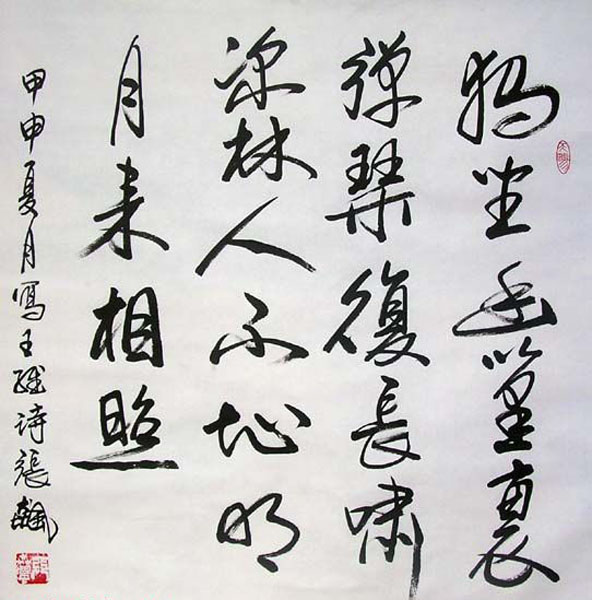 獨坐幽篁裏
彈琴復長嘯
深林人不知明
月来相照
甲申夏月寫王維詩張飆